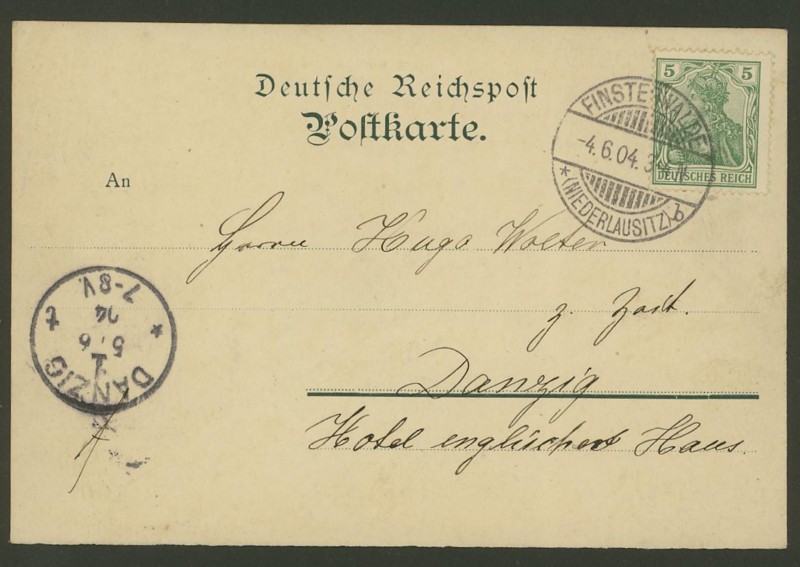 Deutsche Reichspost
Postkarte.
5 5
DEUTSCHES REICH
FINSTERWALDE
-4.6.04.3
* (NIEDERLAUSITZ) b
An
Herrn Hugo Wolter
z. Zeit.
Danzig
Hotel englischert Haus.
DANZIG
1
5.6
04
7-8V.
* t